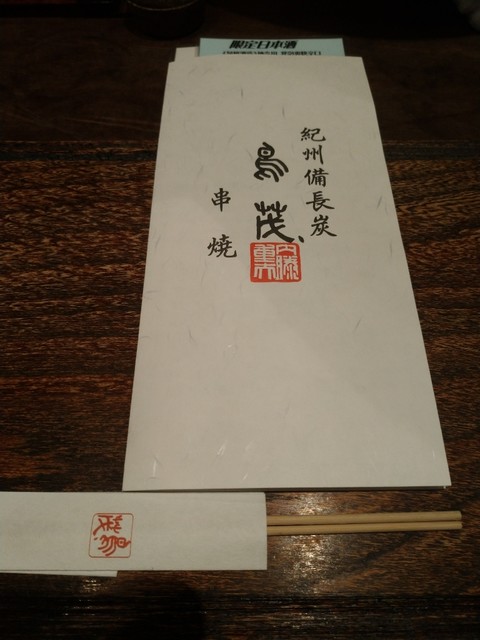 限定日本酒
紀州備長炭
鳥茂
串焼